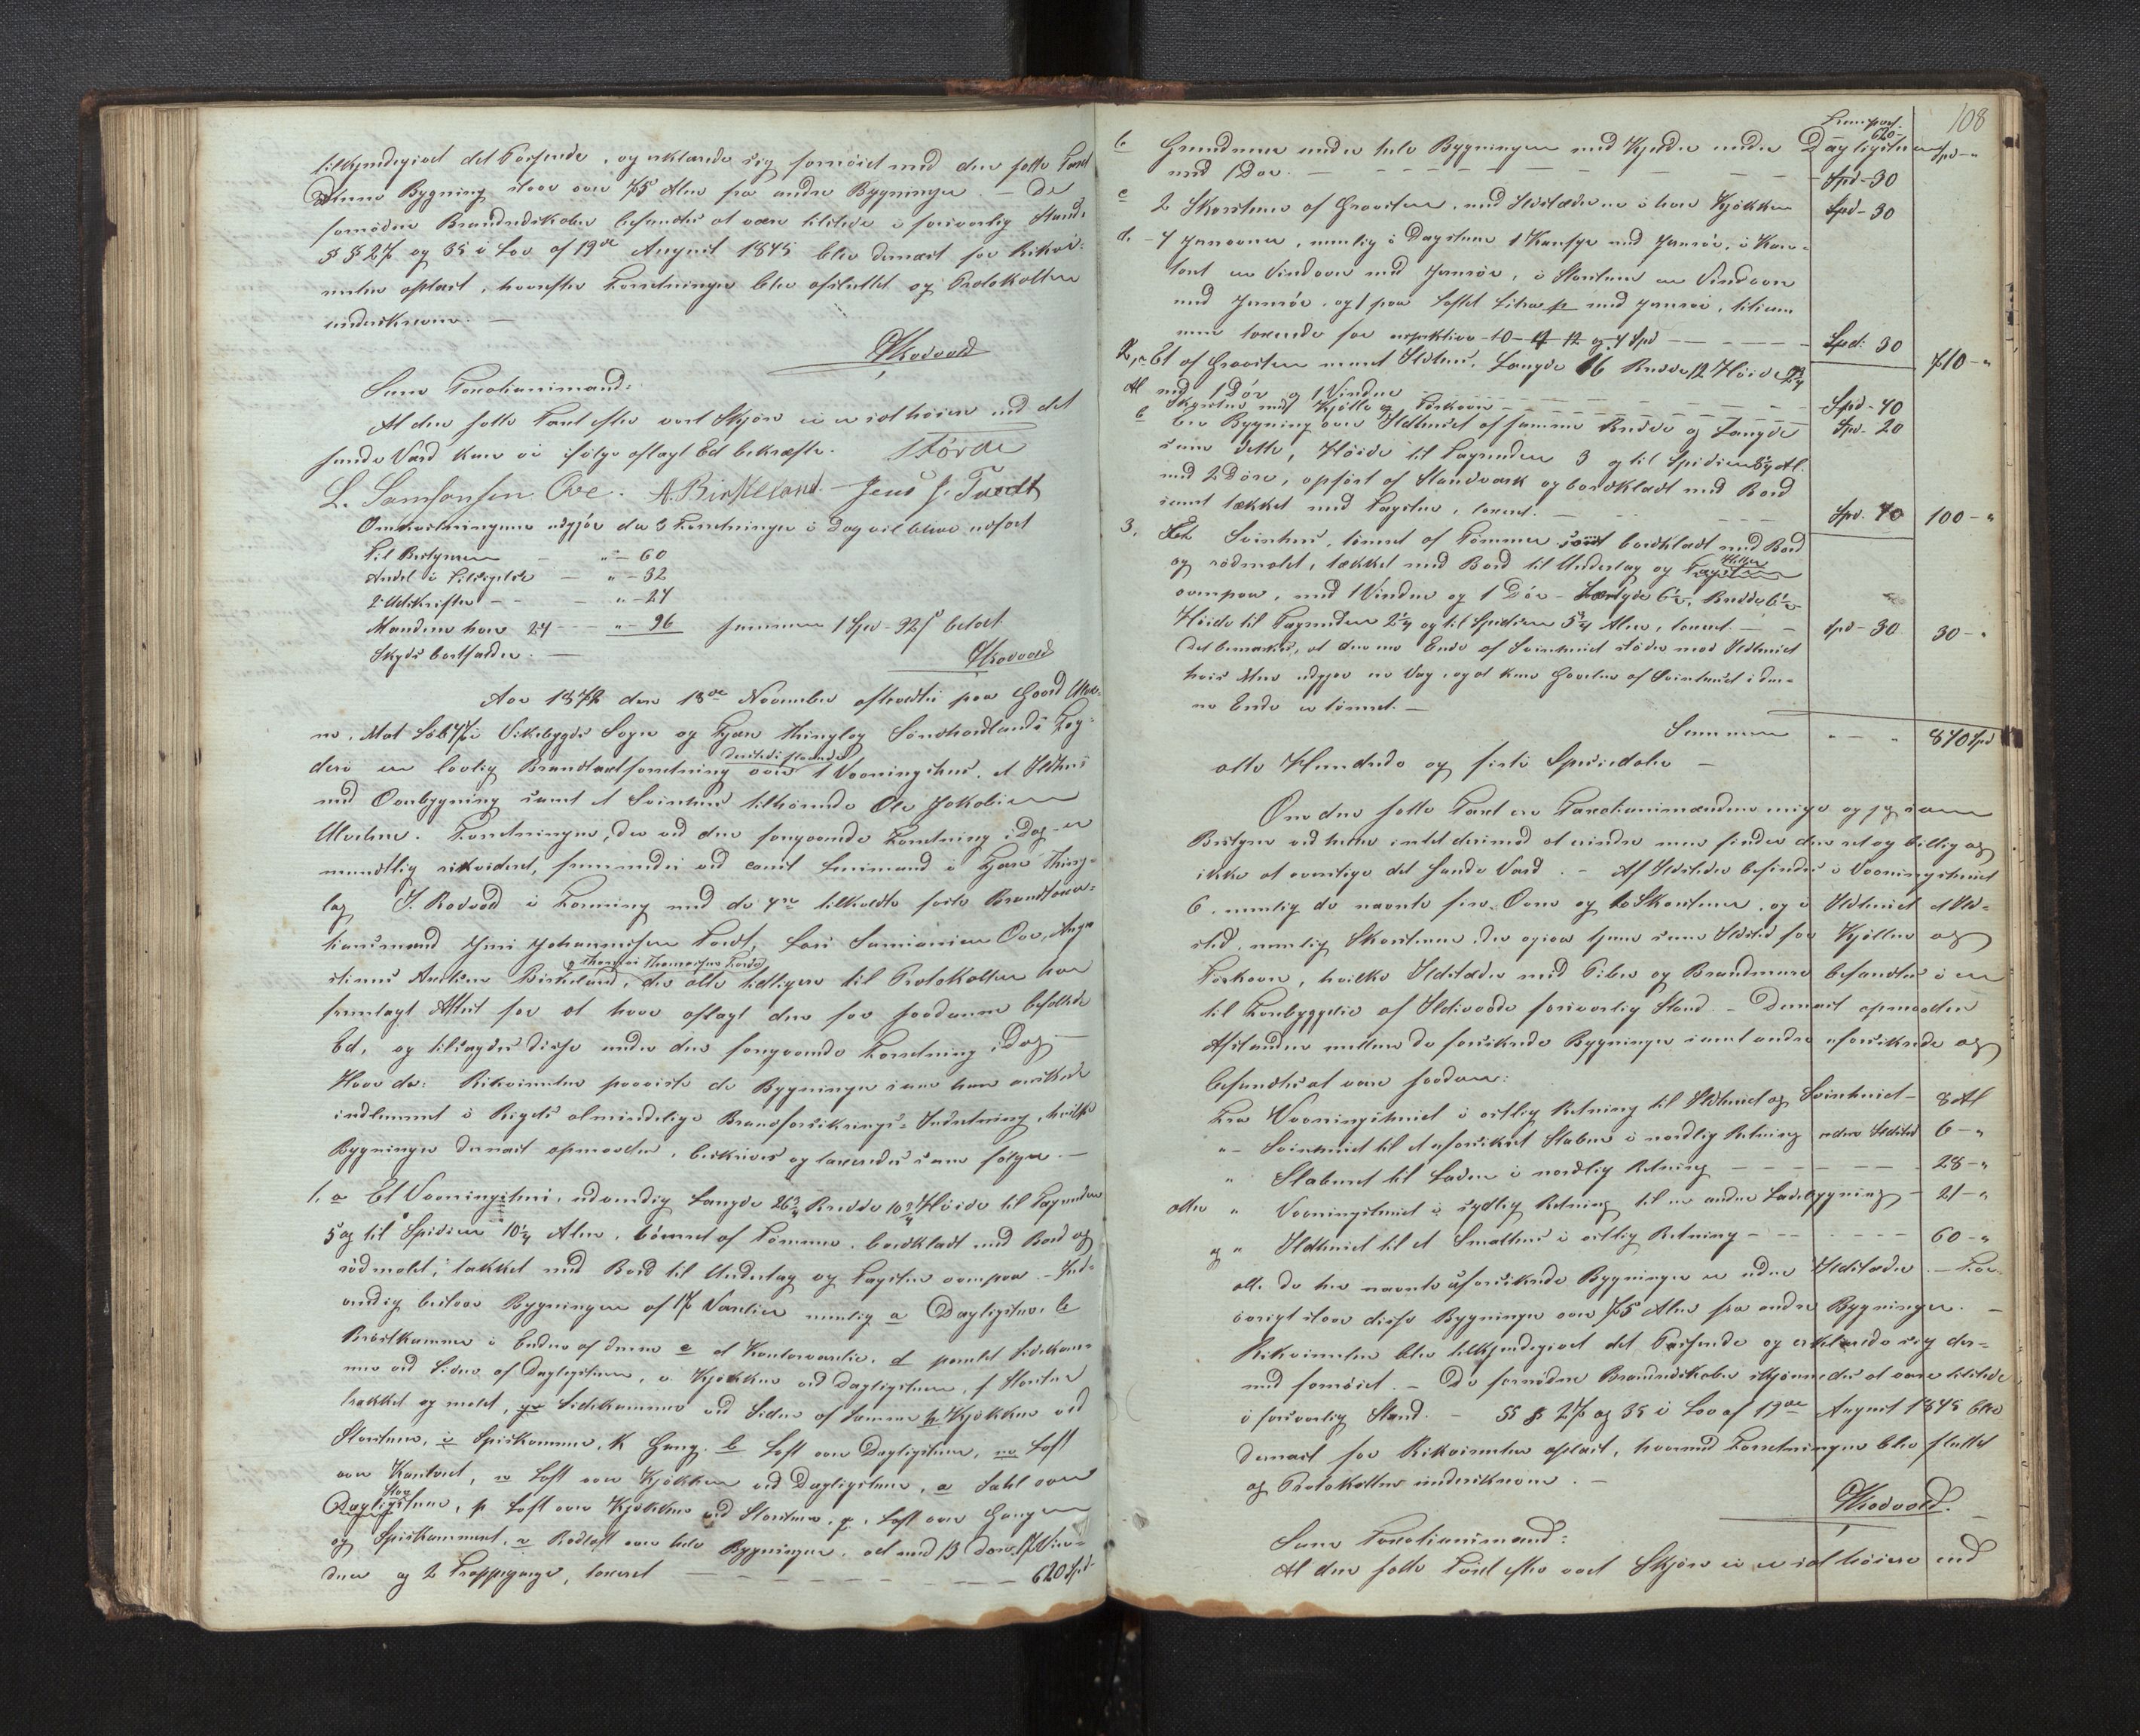 tilkjendegivet det Passerede, og erklærede sig fornöiet med den satte Taxt
Denne Bygning staar over 75 Alen fra andre Bygninger. – De
fornödne Brandredskaber befandtes at være tilstede i forsvarlig Stand.
§ § 27 og 35 i Lov af 19de August 1845 blev dernæst for Rekvi-
renten oplæst, hvorefter Forretningen blev afsluttet og Protokollen
underskreven. –
Rodvold
Som Taxationsmænd:
At den satte Taxt efter vort Skjön ei er sat höiere end det
sande Værd kan vi ifölge aflagt Ed bekræfte. T Förde
L. Samsonsen Ove. A. Birkeland. Jens J. Tvedt
Omkostningerne udgjör da 3 Forretninger i Dag vil blive udfört
Til Bestyreren – " – 60
Andel i Tilsigelse – " – 32
2 Udskrifter – – " – 24
Mændene hver 24 – " – 96 Summen 1 Spd – 92 s betalt
Skyds bortfalder. –
Rodvold
Aar 1872 den 18de November afholdtes paa Gaard Ulve-
ne, Mat Löb 47 i Vikebygds Sogn og Fjære Thinglag Söndhordlands Fog-
deri en lovlig Brandtaxtforretning over 1 Vaaningshus, et Ildhus
dersteds staaende
med Overbygning samt et Svinehus tilhörende Ole Jakobsen
Ulvene. Forretningen, der ved den foregaaende Forretning i Dag er
mundtlig rekvireret, fremmedes ved const Lensmand i Fjære Thing-
lag J. Rodvold i Forening med de 4re tilkaldte faste Brandtaxa-
tionsmænd Jens Johannesen Tvedt, Lars Samsonsen Ove, Augu
stinus Andersen Birkeland, og Thomas Thomassen Förde, der alle tidligere til Protokollen har
fremlagt Attest for at have aflagt den for saadanne befalede
Ed, og tilsagdes disse under den foregaaende Forretning i Dag –
Hvor da: Rekvirenten paaviste de Bygninger som han önskede
indlemmet i Rigets almindelige Brandforsikrings-Indretning, hvilke
Bygninger dernæst opmaaltes, beskrives og taxeredes som fölger –
1. a Et Vaaningshus, udvendig Længde 26 3/4 Bredde 10 3/4 Höide til Tagrenden
5 og til Spidsen 10 1/4 Alen, tömret af Tömmer, bordklædt med Bord og
rödmalet, tækket med Bord til Underlag og Tagsten ovenpaa. – Ind-
vendig bestaar Bygningen af 17 Værelser nemlig a Dagligstue, b
Bröstkammer i Enden af denne c et Kontorværelse, d panelt Sidekam-
mer ved Siden af Dagligstuen, e Kjökken ved Dagligstuen, f Storstue
trækket og malet, g Sidekammer ved Siden af samme h Kjökken ved
Storstuen, i Spiskammer, k Gang. l Loft over Dagligstuen, m Loft
over Kontoret, n Loft over Kjökken ved Dagligstuen, o Sahl over
Stor
Dagligstuen, p Loft over Kjökken ved Storstuen, q, Loft over Gangen
og Spiskammeret, r Rödloft over hele Bygningen, alt med 13 Döre, 17 Vin-
duer og 2 Trappegange, taxeret – – – – – 620 Spd
108
Transport
620
b Grundmur under hele Bygningen med Kjælder under Dagligstuen Spd – "
med 1 Dör. – – – – – Spd – 30
c 2 Skorstene af Graasten, med Ildstæderne i hver Kjökken Spd – 30
d. – 4 Jernovne, nemlig i Dagstuen 1 Kantige med Jernrör, i Kon-
toret en Vindovn med Jernrör, i Storstuen en Vindovn
med Jernrör, og 1 paa Loftet Litra p med Jernrör, tilsam
men taxerede for respektive 10 – 4 12 og 4 Spd – – – Spd: 30 710 – "
2, a Et af Graasten muret Ildhus. Længde 16 Bredde 12 Höide 2 3/4
Al med 1 Dör og 1 Vindue – – – Spd – 40
Skorsten med Kjölle og Törkeovn – – – Spd – 20
b En Bygning over Ildhuset af samme Bredde og Længde
som dette, Höide til Tagrenden 3 og til Spidsen 5 1/2 Al.
med 2 Döre, opfört af Standværk og bordklædt med Bord
samt tækket med Tagsten, taxeret. – – – Spd. 40 100 – "
3. Et Svinehus, tömret af Tömmer samt bordklædt med Bord
og rödmalet, tækket med Bord til Underlag og Tagsten Heller
ovenpaa, med 1 Vindue og 1 Dör – Længde 6 1/2, Bredde 6 1/2
Höide til Tagrenden 2 1/4 og til Spidsen 5 3/4 Alen, taxeret – – Spd – 30 30 – "
Det bemærkes, at den ene Ende af Svinehuset stöder mod Ildhuset
hvis Mur udgjör en Væg, og at kun Gavlen af Svinehuset i den-
ne Ende er tömret. –
Summen " – " 840 Spd
otte Hundrede og firti Speciedaler –
Om den satte Taxt er Taxationsmændene enige og jeg som
Bestyrer ved heller intet derimod at erindre men finder den ret og billig og
ikke at overstige det sande Værd. – Af Ildsteder befindes i Vaaningshuset
6, nemlig de nævnte fire Ovne og to Skorstene, og i Ildhuset et Ild-
sted, nemlig Skorstenen der ogsaa tjener som Ildsted for Kjöllen og
Törkeovn, hvilke Ildsteder med Piber og Brandmure befandtes i en
til Forebyggelse af Ildsvaade forsvarlig Stand. – Dernæst opmaaltes
Afstanden mellem de forsikrede Bygninger samt andre uforsikrede og
befandtes at være saadan:
Fra Vaaningshuset i östlig Retning til Ildhuset og Svinehuset – 8 Al
" – Svinehuset til et uforsikret Stabur i nordlig Retning uden Ildsted 6 – "
" Staburet til Laden i nordlig Retning – – – 28 – "
atter " Vaaningshuset i sydlig Retning til en anden Ladebygning – 21 – "
og " Ildhuset til et Smalehus i östlig Retning – – – 60 – "
alle de her nævnte uforsikrede Bygninger er uden Ildsteder. – For-
övrigt staar disse Bygninger over 75 Alen fra andre Bygninger. –
Rekvirenten blev tilkjendegivet det Passerede og erklærede sig der-
med fornöiet. – De fornödne Brandredskaber skjönnedes at være tilstede
i forsvarlig Stand. – §§ § 27 og 35 i Lov af 19de August 1845 blev
dernæst for Rekvirenten oplæst, hvormed Forretningen blev sluttet
og Protokollen underskreven. –
Rodvold.
Som Taxationsmænd:
At den satte Taxt efter vort Skjön ei er sat höiere end